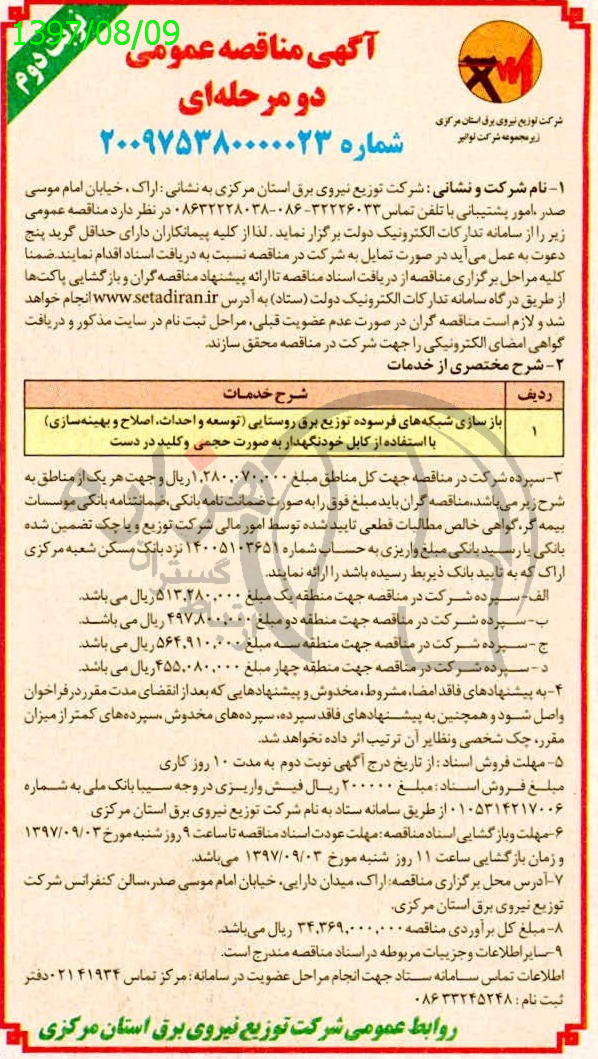 1397/08/09
نوبت دوم
آگهی مناقصه عمومی
دو مرحله‌ای
شماره ۲۰۰۹۷۵۳۸۰۰۰۰۰۲۳
شرکت توزیع نیروی برق استان مرکزی
زیرمجموعه شرکت توانیر
۱- نام شرکت و نشانی : شرکت توزیع نیروی برق استان مرکزی به نشانی : اراک ، خیابان امام موسی
صدر ،امور پشتیبانی با تلفن تماس ۳۲۲۲۶۰۳۳-۰۸۶-۰۸۶۳۲۲۲۸۰۳۸ در نظر دارد مناقصه عمومی
زیر را از سامانه تدارکات الکترونیک دولت برگزار نماید . لذا از کلیه پیمانکاران دارای حداقل گرید پنج
دعوت به عمل می‌آید در صورت تمایل به شرکت در مناقصه نسبت به دریافت اسناد اقدام نمایند.ضمنا
کلیه مراحل برگزاری مناقصه از دریافت اسناد مناقصه تا ارائه پیشنهاد مناقصه گران و بازگشایی پاکت‌ها
از طریق درگاه سامانه تدارکات الکترونیک دولت (ستاد) به آدرس www.setadiran.ir انجام خواهد
شد و لازم است مناقصه گران در صورت عدم عضویت قبلی، مراحل ثبت نام در سایت مذکور و دریافت
گواهی امضای الکترونیکی را جهت شرکت در مناقصه محقق سازند.
۲- شرح مختصری از خدمات
ردیف شرح خدمات
۱ باز سازی شبکه‌های فرسوده توزیع برق روستایی (توسعه و احداث، اصلاح و بهینه‌سازی)
با استفاده از کابل خودنگهدار به صورت حجمی وکلید در دست
۳- سپرده شرکت در مناقصه جهت کل مناطق مبلغ ۱,۲۸۰,۰۷۰,۰۰۰ریال و جهت هر یک از مناطق به
شرح زیر می‌باشد،مناقصه گران باید مبلغ فوق را به صورت ضمانت نامه بانکی، ضمانتنامه بانکی موسسات
بیمه گر،گواهی خالص مطالبات قطعی تایید شده توسط امور مالی شرکت توزیع و یا چک تضمین شده
بانکی یا رسید بانکی مبلغ واریزی به حساب شماره ۱۴۰۰۵۱۰۳۶۵۱ نزد بانک مسکن شعبه مرکزی
اراک که به تایید بانک ذیربط رسیده باشد را ارائه نمایند.
الف- سپرده شرکت در مناقصه جهت منطقه یک مبلغ ۵۱۳,۲۸۰,۰۰۰ریال می باشد.
ب- سپرده شرکت در مناقصه جهت منطقه دو مبلغ ۴۹۷,۸۰۰,۰۰۰ ریال می باشد.
ج - سپرده شرکت در مناقصه جهت منطقه سه مبلغ ۵۶۴,۹۱۰,۰۰۰ ریال می باشد.
د - سپرده شرکت در مناقصه جهت منطقه چهار مبلغ ۴۵۵,۰۸۰,۰۰۰ریال می باشد.
۴- به پیشنهادهای فاقد امضا، مشروط، مخدوش و پیشنهادهایی که بعد از انقضای مدت مقرر در فراخوان
واصل شود و همچنین به پیشنهادهای فاقد سپرده، سپرده‌های مخدوش ،سپرده‌های کمتر از میزان
مقرر، چک شخصی ونظایر آن ترتیب اثر داده نخواهد شد.
۵- مهلت فروش اسناد : از تاریخ درج آگهی نوبت دوم به مدت ۱۰ روز کاری
مبلغ فروش اسناد : مبلغ ۲۰۰۰۰۰ ریال فیش واریزی در وجه سیبا بانک ملی به شماره
۰۱۰۵۳۱۴۲۱۷۰۰۶ از طریق سامانه ستاد به نام شرکت توزیع نیروی برق استان مرکزی
۶-مهلت وبازگشایی اسناد مناقصه : مهلت عودت اسناد مناقصه تا ساعت ۹ روز شنبه مورخ ۱۳۹۷/۰۹/۰۳
و زمان بازگشایی ساعت ۱۱ روز شنبه مورخ ۱۳۹۷/۰۹/۰۳ می‌باشد.
۷-آدرس محل برگزاری مناقصه: اراک، میدان دارایی، خیابان امام موسی صدر،سالن کنفرانس شرکت
توزیع نیروی برق استان مرکزی.
۸- مبلغ کل برآوردی مناقصه ۳۴,۳۶۹,۰۰۰,۰۰۰ ریال می‌باشد.
۹-سایر اطلاعات وجزییات مربوطه در اسناد مناقصه مندرج است.
اطلاعات تماس سامانه ستاد جهت انجام مراحل عضویت در سامانه : مرکز تماس ۰۲۱۴۱۹۳۴ دفتر
ثبت نام : ۳۳۲۴۵۲۴۸ ۰۸۶
روابط عمومی شرکت توزیع نیروی برق استان مرکزی